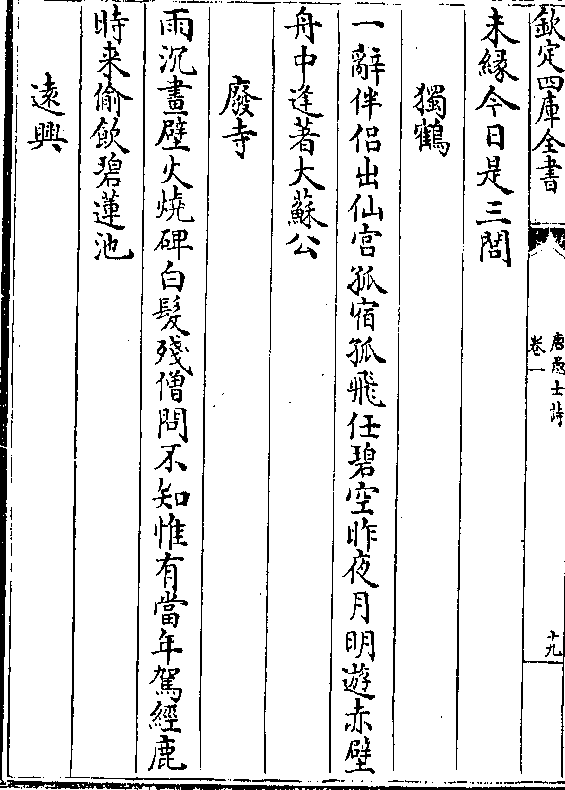 欽定四庫全書
唐愚士詩
卷一
十九
未縁今日是三閭
獨鶴
一辭伴侣出仙宫孤宿孤飛任碧空昨夜月明遊赤壁
舟中逢著大蘇公
廢寺
雨沉畫壁火燒碑白髮殘僧問不知惟有當年駕經鹿
時来偷飲碧蓮池
遠興